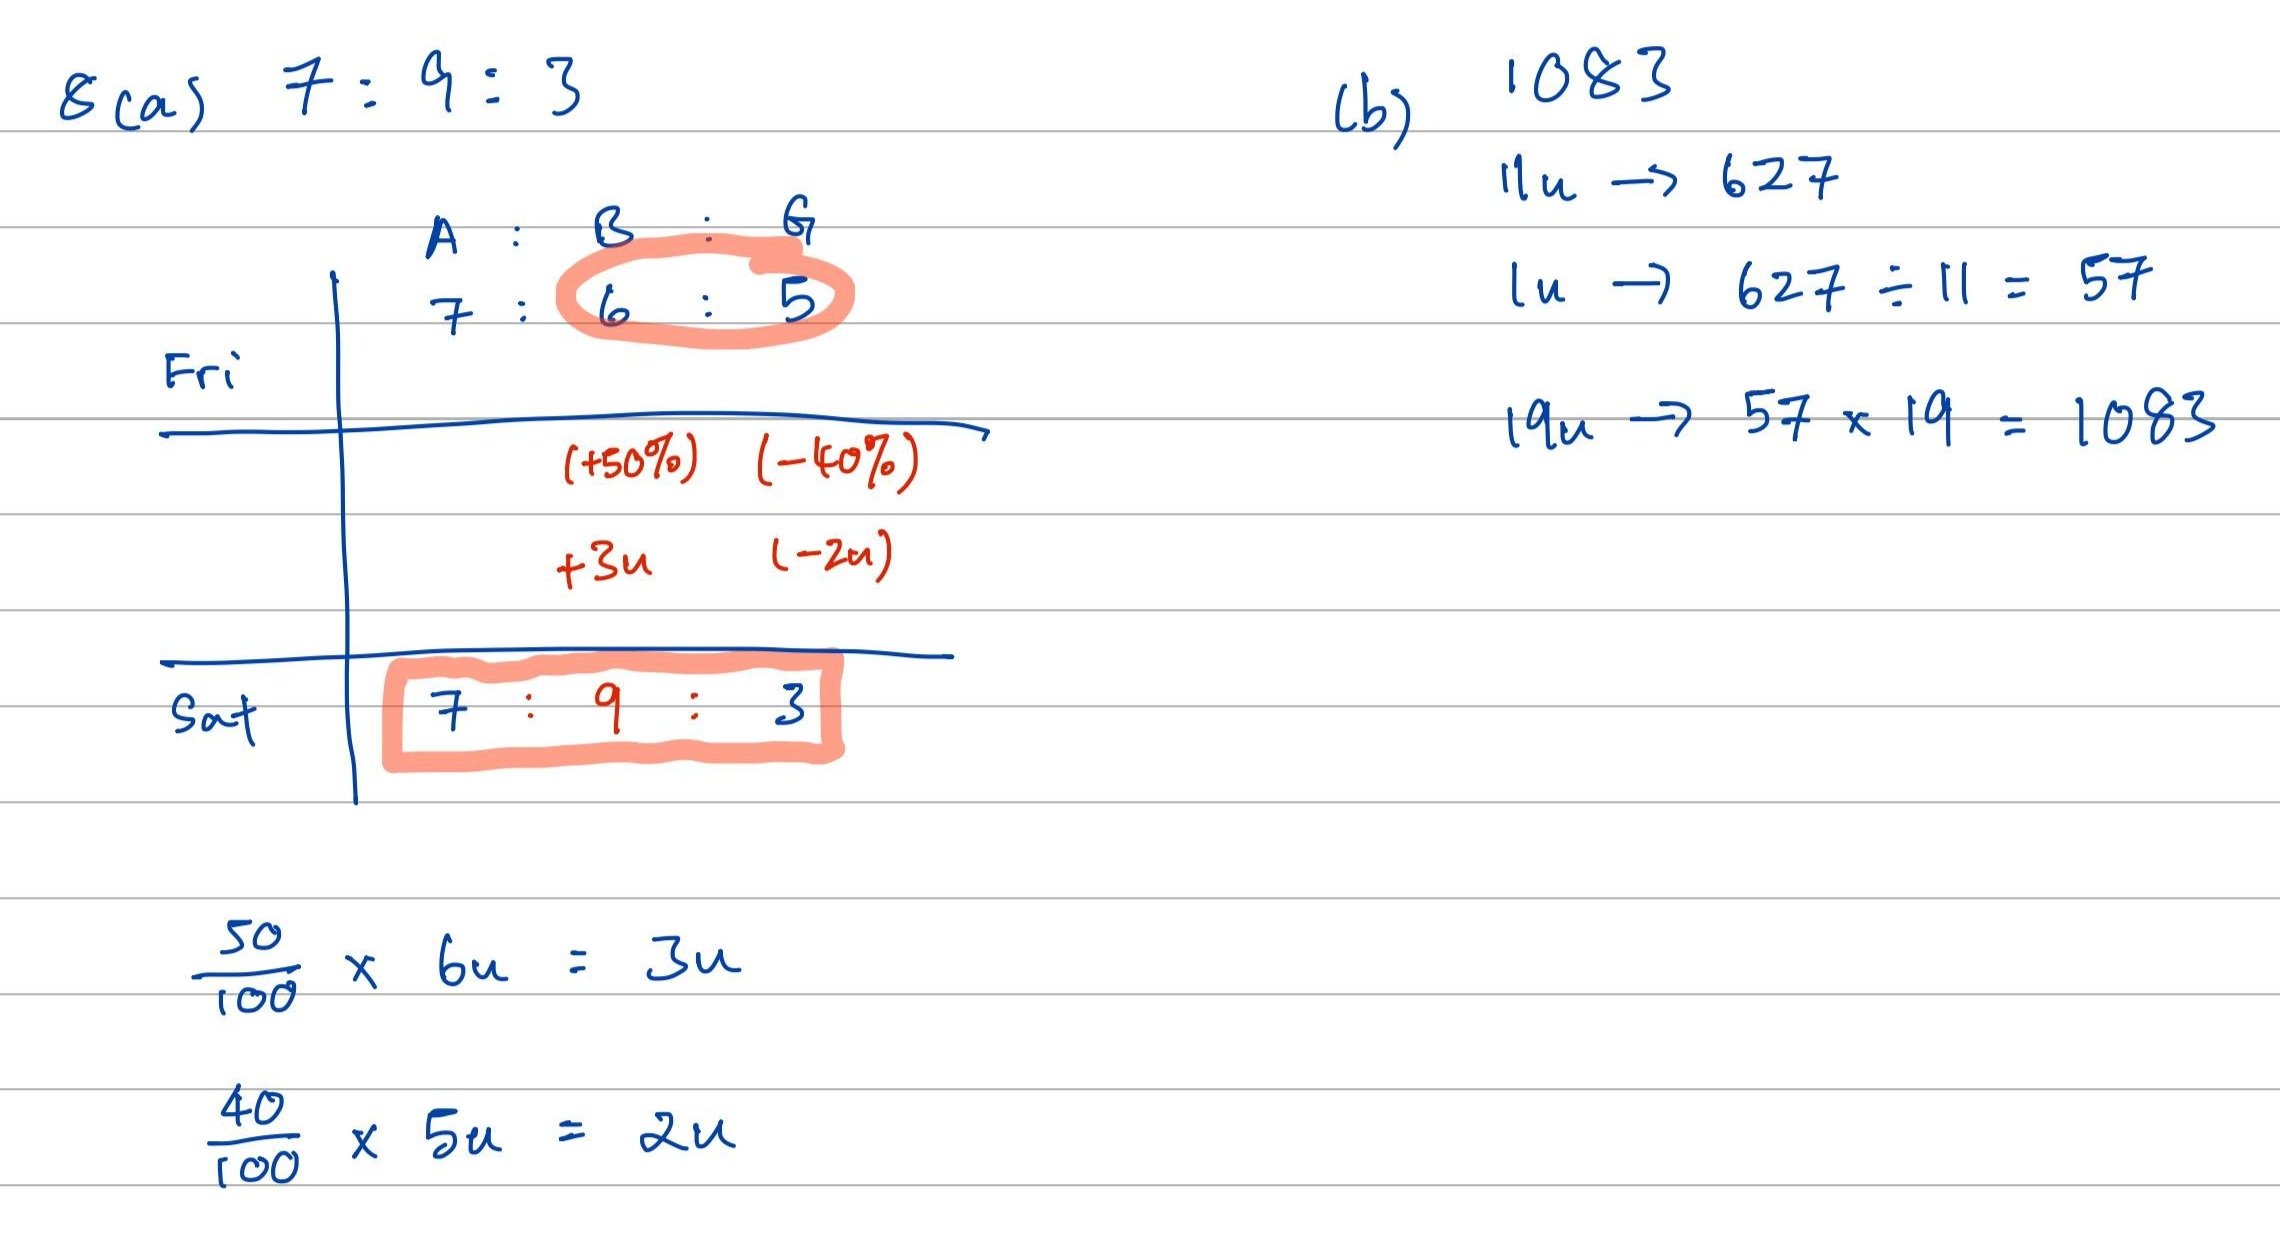 8(a) 7 : 9 : 3
A : B : G
7 : 6 : 5
Fri
(+50%) (-40%)
+3u (-2u)
Sat 7 : 9 : 3
50/100 x 6u = 3u
40/100 x 5u = 2u
(b) 1083
11u → 627
1u → 627 ÷ 11 = 57
19u → 57 x 19 = 1083